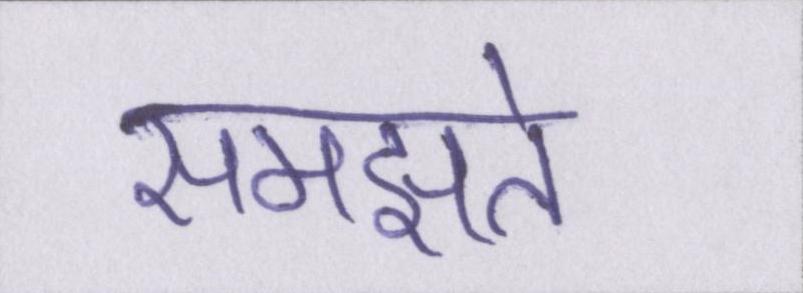 समझते